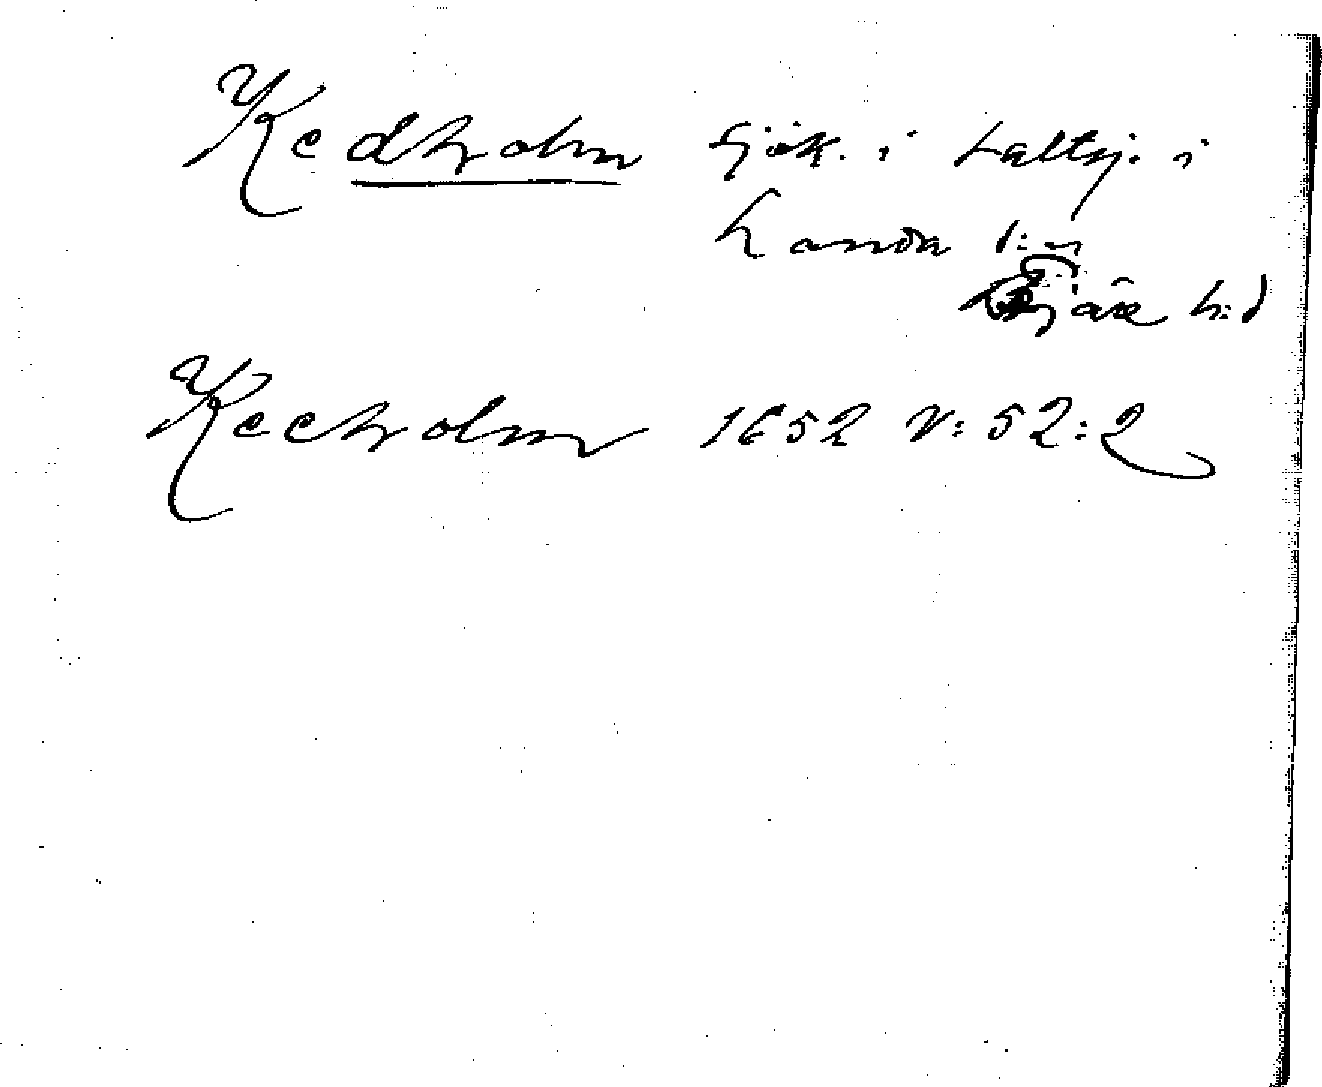 Kedholm sjök. i Saltsj. i
Landa s:n
Fjäre h:d
Keeholm 1652 V: 52:2